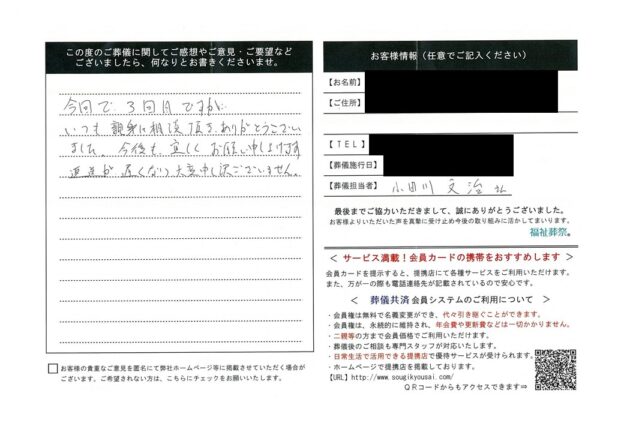 この度のご葬儀に関してご感想やご意見・ご要望など
ございましたら、何なりとお書きくださいませ。
今回で3回目ですが
いつも親身に相談頂きありがとうござい
ました。今後も宜しくお願い申し上げます
返送が遅くなり大変申し訳ございません。
お客様の貴重なご意見を匿名にて弊社ホームページ等に掲載させていただく場合が
ございます。ご希望されない方は、こちらにチェックをお願いいたします。
お客様情報（任意でご記入ください）
【お名前】
【ご住所】
【TEL】
【葬儀施行日】
【葬儀担当者】 小田川 文治
最後までご協力いただきまして、誠にありがとうございました。
お客様よりいただいた声を真摯に受け止め今後の取り組みに活かしてまいります。
福祉葬祭®
＜ サービス満載！会員カードの携帯をおすすめします ＞
会員カードを提示すると、提携店にて各種サービスをご利用いただけます。
また、万が一の際も電話連絡先が記載されているので安心です。
＜ 葬儀共済 会員システムのご利用について ＞
・会員権は無料で名義変更ができ、代々引き継ぐことができます。
・会員権は、永続的に維持され、年会費や更新費などは一切かかりません。
・二親等の方まで会員価格でご利用いただけます。
・葬儀後のご相談も専門スタッフが対応いたします。
・日常生活で活用できる提携店で優待サービスが受けられます。
・ホームページで提携店を掲載しております。
【URL】http://www.sougikyousai.com/
QRコードからもアクセスできます⇒